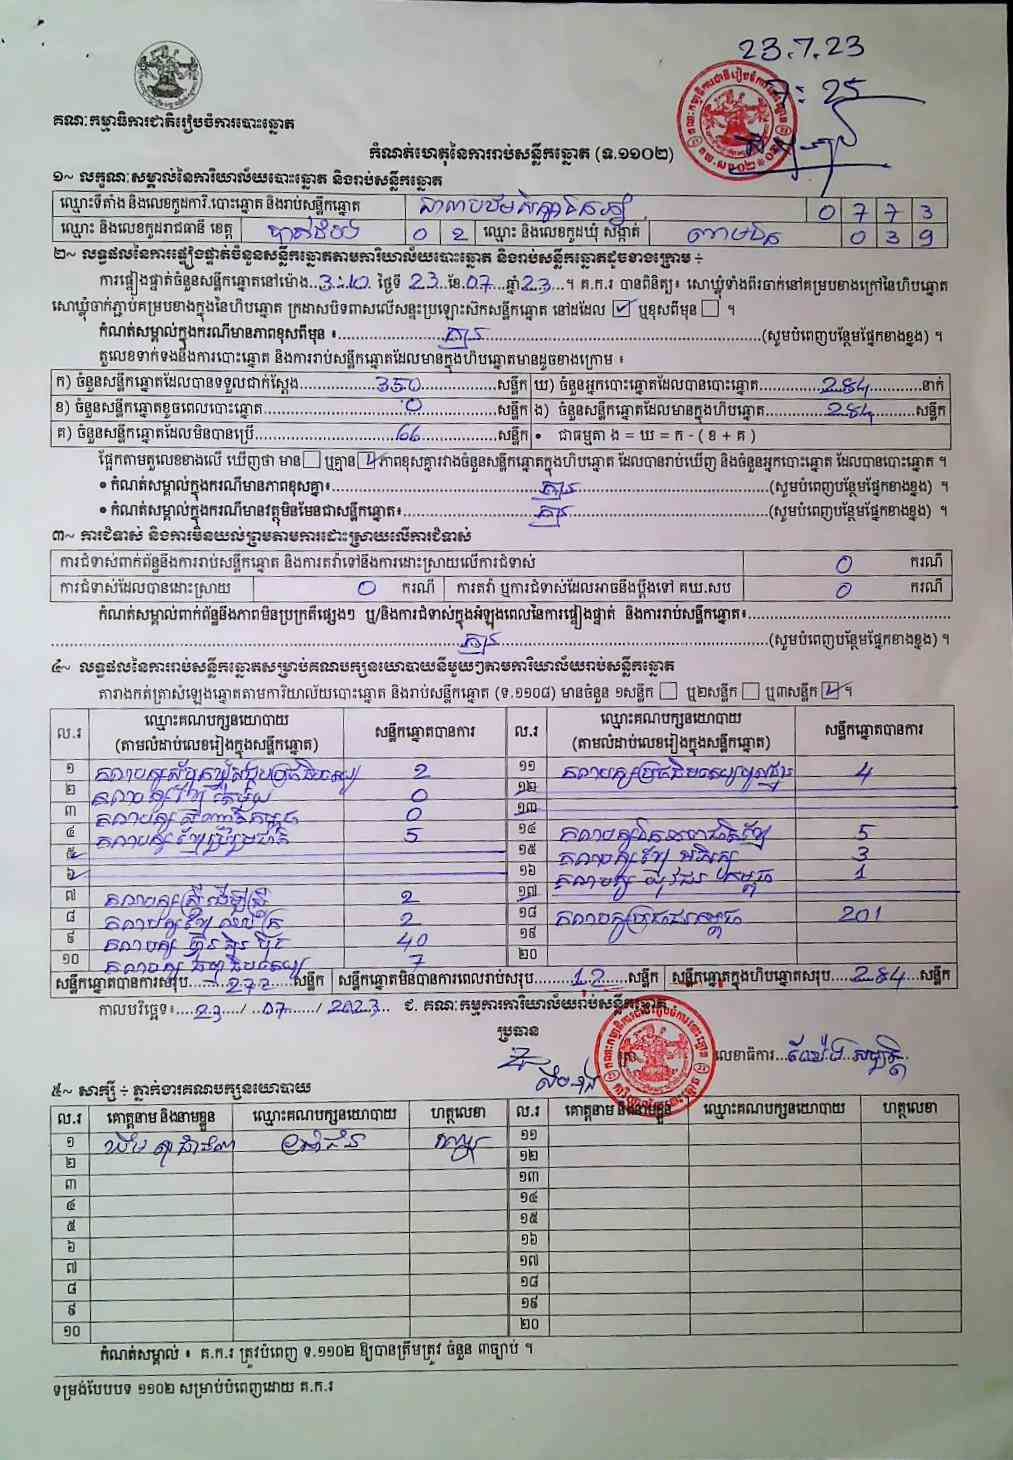 23.7.23
គណៈកម្មាធិការជាតិរៀបចំការបោះឆ្នោត
កំណត់ហេតុនៃការរាប់សន្លឹកឆ្នោត (ទ.១១០២)
១~ លក្ខណៈសម្គាល់នៃការិយាល័យបោះឆ្នោត និងរាប់សន្លឹកឆ្នោត
ឈ្មោះទីតាំង និងលេខកូដការិ.បោះឆ្នោត និងរាប់សន្លឹកឆ្នោត 0 7 7 3
ឈ្មោះ និងលេខកូដរាជធានី ខេត្ត បាត់ដំបង 0 2 ឈ្មោះ និងលេខកូដឃុំ សង្កាត់ 0 3 9
២~ លទ្ធផលនៃការផ្ទៀងផ្ទាត់ចំនួនសន្លឹកឆ្នោតតាមការិយាល័យបោះឆ្នោត និងរាប់សន្លឹកឆ្នោតដូចខាងក្រោម ÷
ការផ្ទៀងផ្ទាត់ចំនួនសន្លឹកឆ្នោតនៅម៉ោង...3:10. ថ្ងៃទី 23 ខែ.07 ឆ្នាំ 23...។ គ.ក.រ បានពិនិត្យ៖ សោឃ្លុំទាំងពីរចាក់នៅគម្របខាងក្រៅនៃហិបឆ្នោត
សោឃ្លុំចាក់ភ្ជាប់គម្របខាងក្នុងនៃហិបឆ្នោត ក្រដាសបិទពាសលើសន្ទះប្រឡោះស៊កសន្លឹកឆ្នោត នៅដដែល ☑ ឬខុសពីមុន ☐ ។
កំណត់សម្គាល់ក្នុងករណីមានភាពខុសពីមុន ៖ គ្មាន (សូមបំពេញបន្ថែមផ្នែកខាងខ្នង) ។
តួលេខទាក់ទងនឹងការបោះឆ្នោត និងការរាប់សន្លឹកឆ្នោតដែលមានក្នុងហិបឆ្នោតមានដូចខាងក្រោម ៖
ក) ចំនួនសន្លឹកឆ្នោតដែលបានទទួលជាក់ស្តែង 350 សន្លឹក ឃ) ចំនួនអ្នកបោះឆ្នោតដែលបានបោះឆ្នោត 284 នាក់
ខ) ចំនួនសន្លឹកឆ្នោតខូចពេលបោះឆ្នោត 0 សន្លឹក ង) ចំនួនសន្លឹកឆ្នោតដែលមានក្នុងហិបឆ្នោត 284 សន្លឹក
គ) ចំនួនសន្លឹកឆ្នោតដែលមិនបានប្រើ 66 សន្លឹក • ជាធម្មតា ង = ឃ = ក - ( ខ + គ )
ផ្អែកតាមតួលេខខាងលើ ឃើញថា មាន ☐ ឬគ្មាន ☑ ភាពខុសគ្នារវាងចំនួនសន្លឹកឆ្នោតក្នុងហិបឆ្នោត ដែលបានរាប់ឃើញ និងចំនួនអ្នកបោះឆ្នោត ដែលបានបោះឆ្នោត ។
• កំណត់សម្គាល់ក្នុងករណីមានភាពខុសគ្នា៖ គ្មាន (សូមបំពេញបន្ថែមផ្នែកខាងខ្នង) ។
• កំណត់សម្គាល់ក្នុងករណីមានវត្ថុមិនមែនជាសន្លឹកឆ្នោត៖ គ្មាន (សូមបំពេញបន្ថែមផ្នែកខាងខ្នង) ។
៣~ ការជំទាស់ និងការមិនយល់ព្រមតាមការដោះស្រាយលើការជំទាស់
ការជំទាស់ពាក់ព័ន្ធនឹងការរាប់សន្លឹកឆ្នោត និងការតវ៉ាទៅនឹងការដោះស្រាយលើការជំទាស់ 0 ករណី
ការជំទាស់ដែលបានដោះស្រាយ 0 ករណី ការតវ៉ា ឬការជំទាស់ដែលអាចនឹងប្តឹងទៅ គឃ.សប 0 ករណី
កំណត់សម្គាល់ពាក់ព័ន្ធនឹងភាពមិនប្រក្រតីផ្សេងៗ ឬ/និងការជំទាស់ក្នុងអំឡុងពេលនៃការផ្ទៀងផ្ទាត់ និងការរាប់សន្លឹកឆ្នោត៖
គ្មាន (សូមបំពេញបន្ថែមផ្នែកខាងខ្នង) ។
៤~ លទ្ធផលនៃការរាប់សន្លឹកឆ្នោតសម្រាប់គណបក្សនយោបាយនីមួយៗតាមការិយាល័យរាប់សន្លឹកឆ្នោត
តារាងកត់ត្រាសំឡេងឆ្នោតតាមការិយាល័យបោះឆ្នោត និងរាប់សន្លឹកឆ្នោត (ទ.១១០៨) មានចំនួន ១សន្លឹក ☐ ឬ២សន្លឹក ☐ ឬ៣សន្លឹក ☑ ។
ល.រ ឈ្មោះគណបក្សនយោបាយ សន្លឹកឆ្នោតបានការ ល.រ ឈ្មោះគណបក្សនយោបាយ សន្លឹកឆ្នោតបានការ
(តាមលំដាប់លេខរៀងក្នុងសន្លឹកឆ្នោត) (តាមលំដាប់លេខរៀងក្នុងសន្លឹកឆ្នោត)
១ 2 ១១ 4
២ គណបក្សខ្មែរតែមួយ 0 ១២
៣ 0 ១៣
៤ 5 ១៤ 5
៥ ១៥ 3
៦ ១៦ 1
៧ គណបក្សស្ត្រីដើម្បីស្ត្រី 2 ១៧
៨ 2 ១៨ គណបក្សប្រជាជនកម្ពុជា 201
៩ គណបក្សហ្វ៊ុនស៊ិនប៉ិច 40 ១៩
១០ 7 ២០
សន្លឹកឆ្នោតបានការសរុប 272 សន្លឹក សន្លឹកឆ្នោតមិនបានការពេលរាប់សរុប 12 សន្លឹក សន្លឹកឆ្នោតក្នុងហិបឆ្នោតសរុប 284 សន្លឹក
កាលបរិច្ឆេទ៖ 23 / 07 / 2023 ជ. គណៈកម្មការការិយាល័យរាប់សន្លឹកឆ្នោត
ប្រធាន
លេខាធិការ
៥~ សាក្សី ÷ ភ្នាក់ងារគណបក្សនយោបាយ
ល.រ គោត្តនាម និងនាមខ្លួន ឈ្មោះគណបក្សនយោបាយ ហត្ថលេខា ល.រ គោត្តនាម និងនាមខ្លួន ឈ្មោះគណបក្សនយោបាយ ហត្ថលេខា
១ ១១
២ ១២
៣ ១៣
៤ ១៤
៥ ១៥
៦ ១៦
៧ ១៧
៨ ១៨
៩ ១៩
១០ ២០
កំណត់សម្គាល់ ៖ គ.ក.រ ត្រូវបំពេញ ទ.១១០២ ឱ្យបានត្រឹមត្រូវ ចំនួន ៣ច្បាប់ ។
ទម្រង់បែបបទ ១១០២ សម្រាប់បំពេញដោយ គ.ក.រ